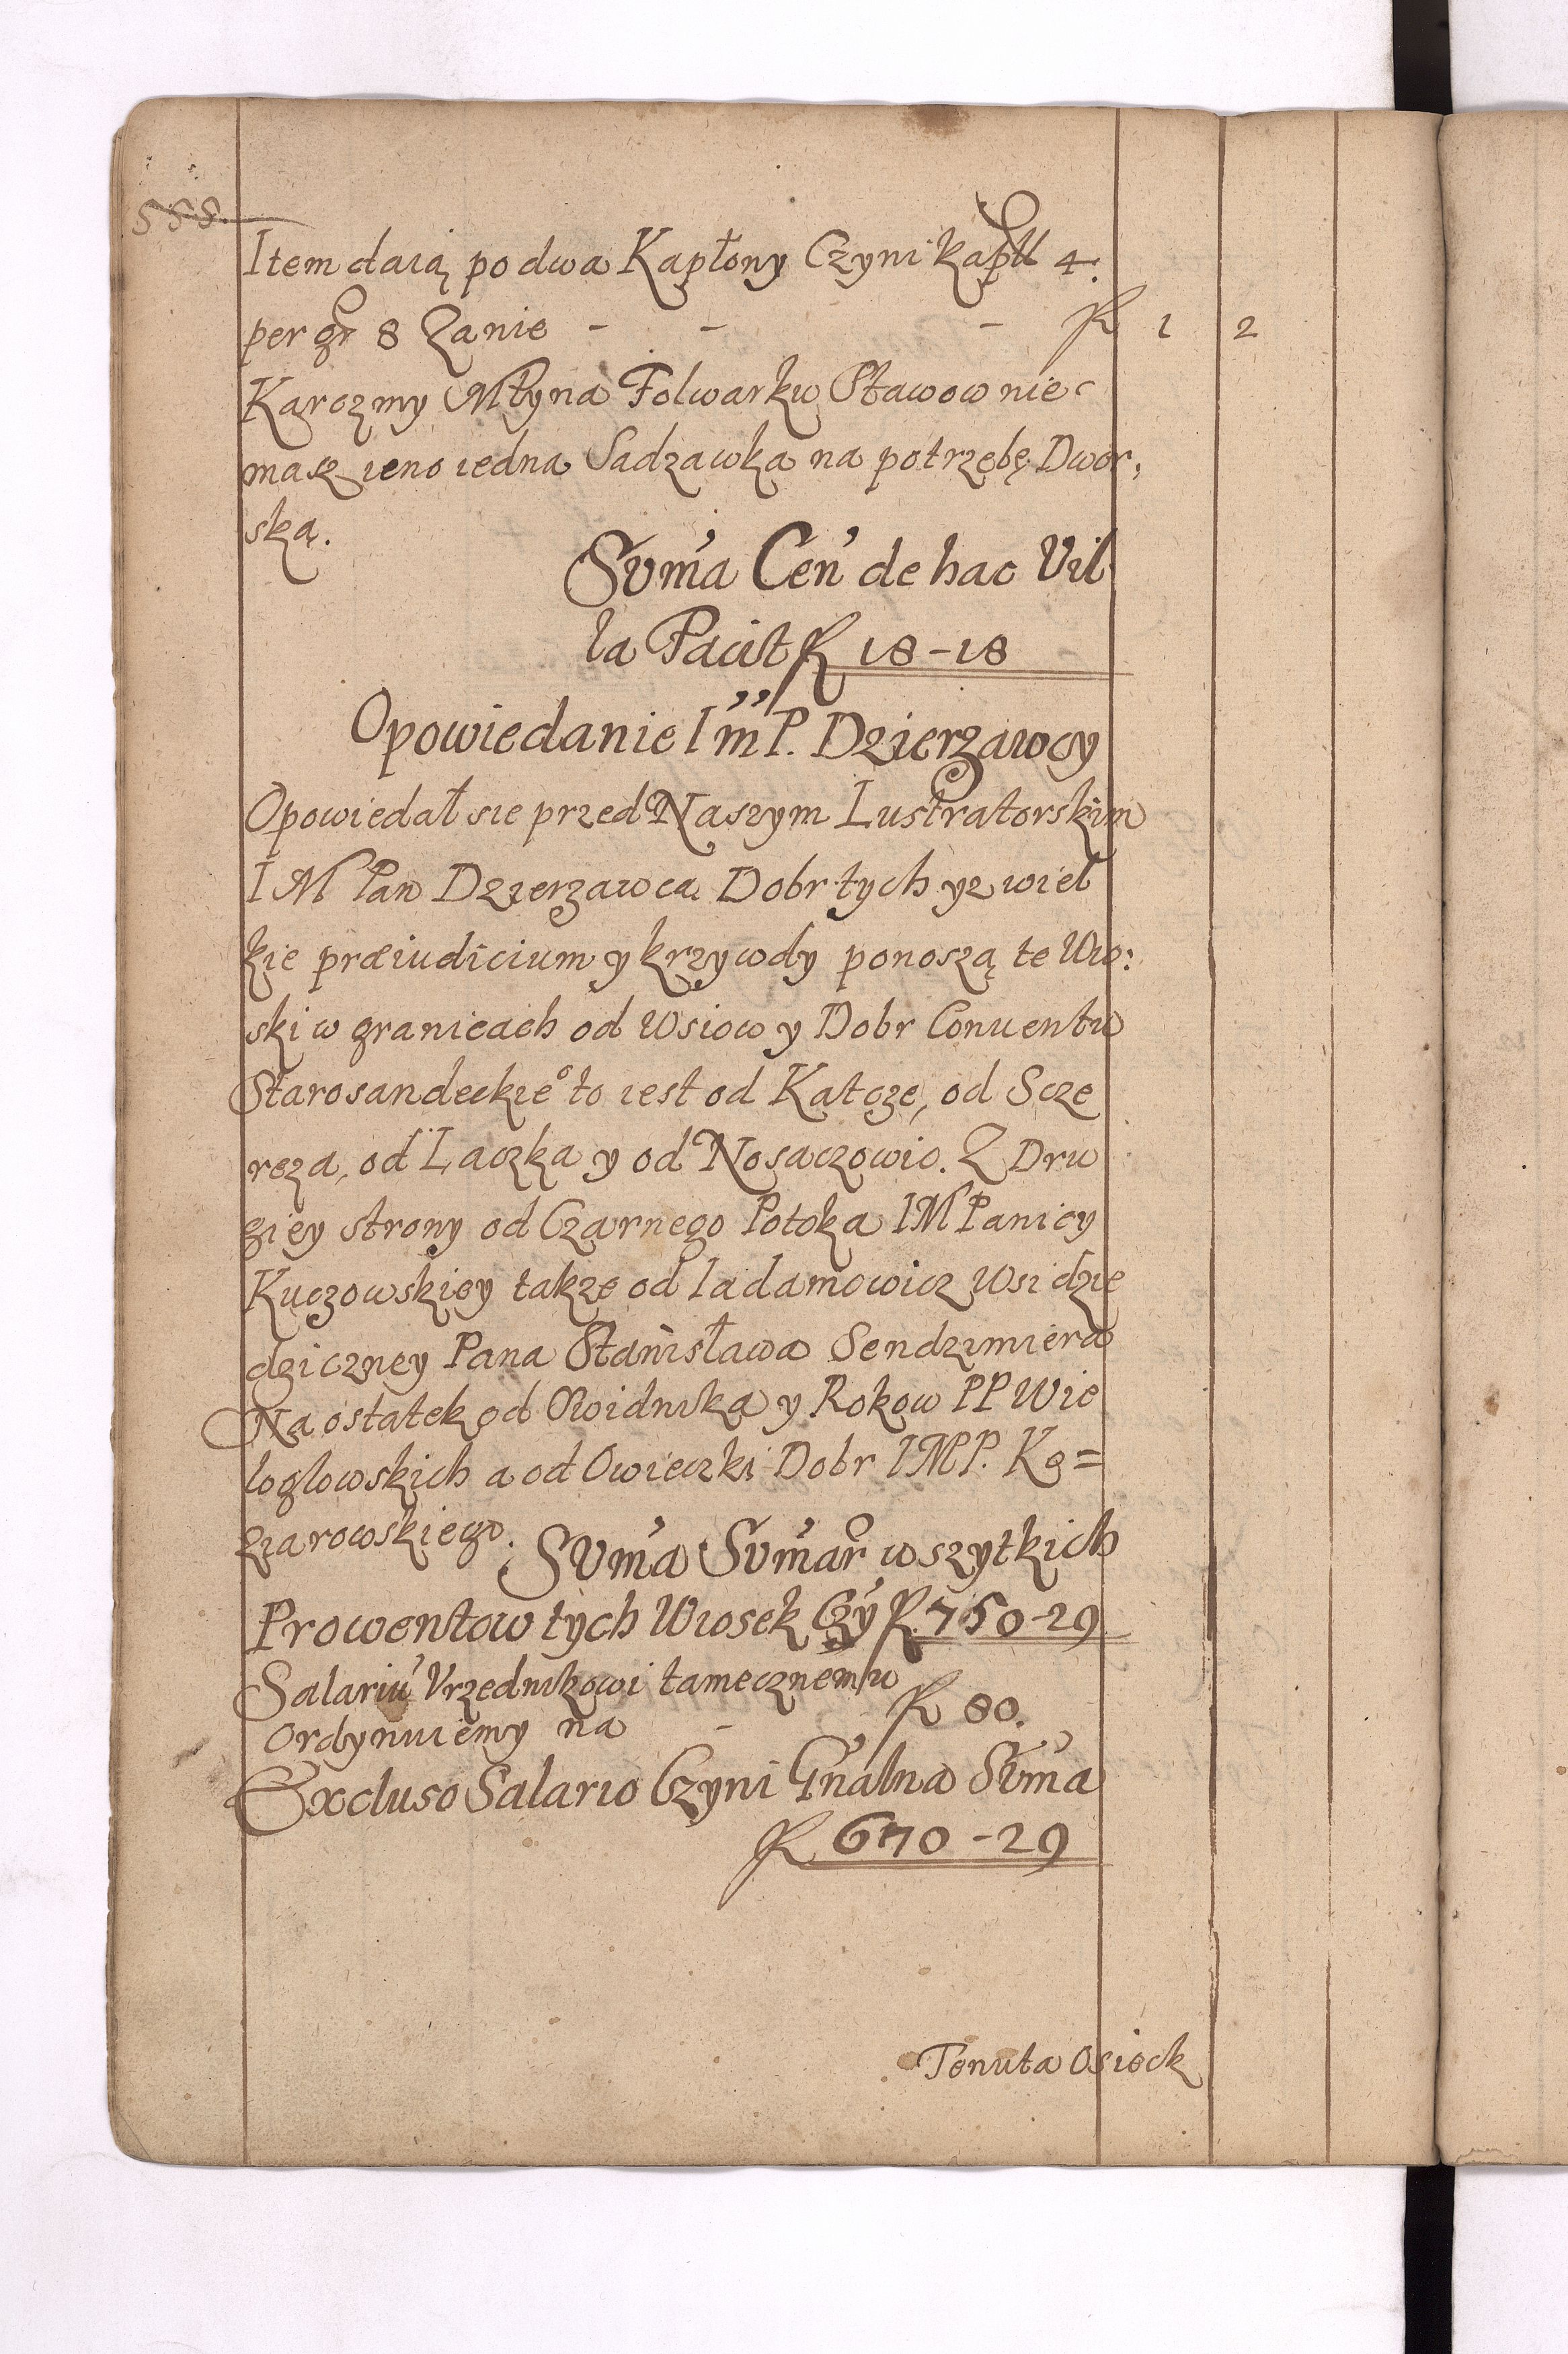 588.
Item daią po dwa Kapłony Czyni kapłł 4.
per gr 8 Zanie - - - fl 1 2
Karczmy Młyna Folwarku Stawow nie
masz ieno iedna Sadzawka na potrzębę Dwor:
ską.
Sum̃a Cen̉ de hac Vil
la Facit fl 18-18
Opowiedanie I m̉ P. Dzierzawcy
Opowiedał sie przed Naszym Lustratorskim
I M Pan Dzierzawca Dobr tych yz wiel
kie præiudicium y krzywdy ponoszą te Wio:
ski w granicach od Wsiow y Dobr Conuentu
Starosandeckieº to iest od Katcze, od Scze
reza, od Laczka y od Nosaczowic. Z Dru
giey strony od Czarnego Potoka IM Paniey
Kuczowskiey takze od Iadamowicz Wsi dzie
dziczney Pana Stanisława Sendzimiera
Na ostatek od Swidnika y Rokow PP Wie
loglowskich a od Owieczki Dobr IMP. Ko=
ziarowskiego.
Sum̃a Sum̃ar wszytkich
Prowentow tych Wiosek Czy̓ fl 750-29
Salariu̓ Vrzednikowi tamecznemu
ordynuiemy na - fl 80.
Excluso Salario Czyni Gn̓alna Sum̃a
fl 670-29
Tenuta Osieck